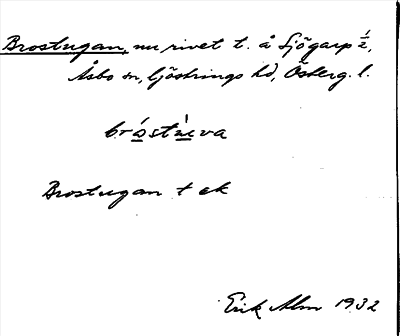 Brostugan, nu rivet t. å Sjögarp ½,
Åsbo sn, Göstrings hd, Österg. l.
bróstù̱va
Brostugan t ek
Erik Alm 1932